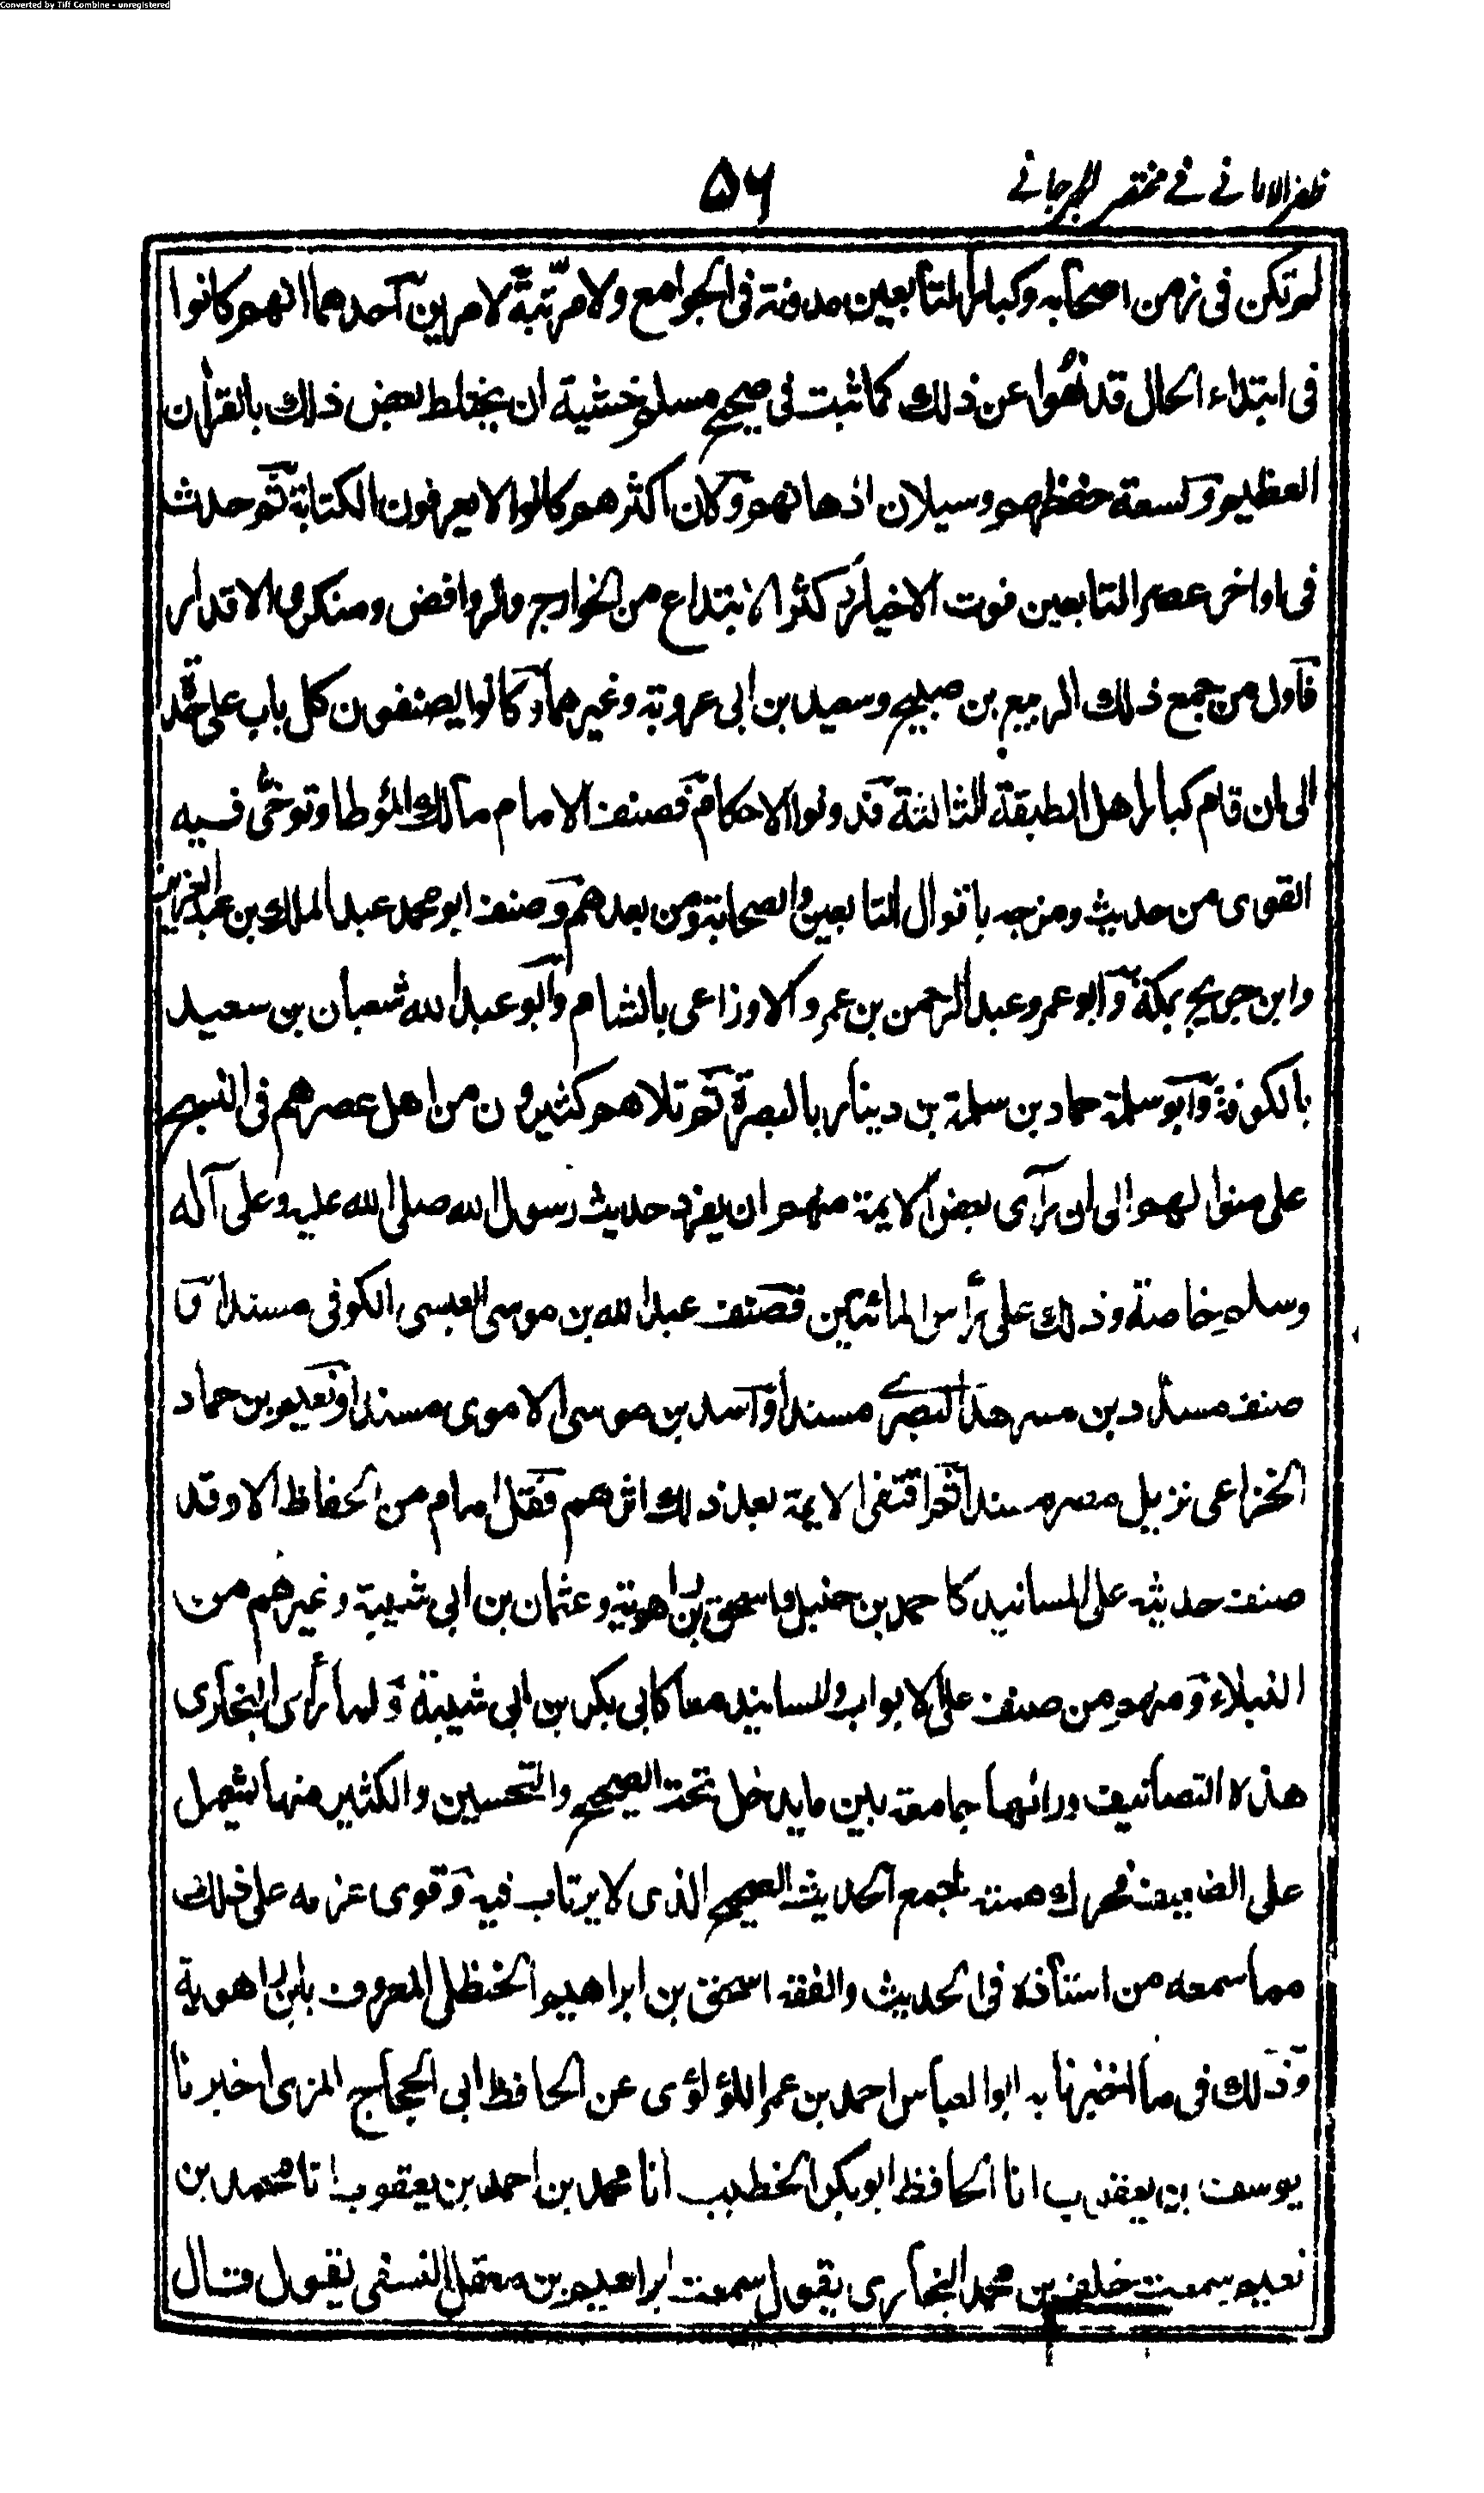 Converted by Tiff Combine - unregistered
ظفر الامانی فی مختصر الجرجانی
۵۶
لم تكن فى زمن اصحابه وكبار التابعين مدونة فى الجوامع ولا مرتبة لامرين احدهما انهم كانوا
فى ابتداء الحال قد نهوا عن ذلك كما ثبت فى صحيح مسلم خشية ان يختلط بعض ذلك بالقرآن
العظيم ولسعة حفظهم وسيلان اذهانهم ولان اكثرهم كانوا لا يعرفون الكتابة ثم حدث
فى اواخر عصر التابعين فوت الاخيار كثر الابتداع من الخوارج والروافض ومنكرى الاقدار
فاول من جمع ذلك الربيع بن صبيح وسعيد بن ابى عروبة وغيرهما وكانوا يصنفون كل باب على حدة
الى ان قام كبار اهل الطبقة الثالثة فدونوا الاحكام فصنف الامام مالك المؤطا وتوخى فيه
القوى من حديث ومزجه باقوال التابعين والصحابة ومن بعدهم وصنف ابو محمد عبد الملك بن عبد العزيز
وابن جريج بمكة وابو عمرو عبد الرحمن بن عمرو الاوزاعى بالشام وابو عبد الله شعبان بن سعيد
بالكوفة وابو سلمة حماد بن سلمة بن دينار بالبصرة ثم تلاهم كثيرون من اهل عصرهم فى النسج
على منوالهم الى ان رآى بعض الايمة منهم ان يفرد حديث رسول الله صلى الله عليه وعلى آله
وسلم خاصة وذلك على رأس المائتين فصنف عبد الله بن موسى العبسى الكوفى مسندا و
صنف مسدد بن مسرهد البصرى مسندا واسد بن موسى الاموى مسندا ونعيم بن حماد
الخزاعى نزيل مصر مسندا ثم اقتفى الايمة بعد ذلك اثرهم فقل امام من الحفاظ الا وقد
صنف حديثه على المسانيد كاحمد بن حنبل واسحق بن راهويه وعثمان بن ابى شيبة وغيرهم من
النبلاء ومنهم من صنف على الابواب والمسانيد معا كابى بكر بن ابى شيبة ولما رأى البخارى
هذه التصانيف ورائها جامعة بين ما يدخل تحت الصحيح والتحسين والكثير منها يشمل
على الضعيف فحرك همته لجمع الحديث الصحيح الذى لا يرتاب فيه وقوى عزمه على ذلك
مما سمعه من استاذه فى الحديث والفقه اسحق بن ابراهيم الحنظلى المعروف بابن راهوية
وذلك فى ما اخبرنا به ابو العباس احمد بن عمر اللؤلؤى عن الحافظ ابى الحجاج المزى اخبرنا
يوسف بن يعقوب انا الحافظ ابو بكر الخطيب انا محمد بن احمد بن يعقوب انا محمد بن
نعيم سمعت خلف بن محمد البخارى يقول سمعت ابراهيم بن معقل النسفى يقول قال